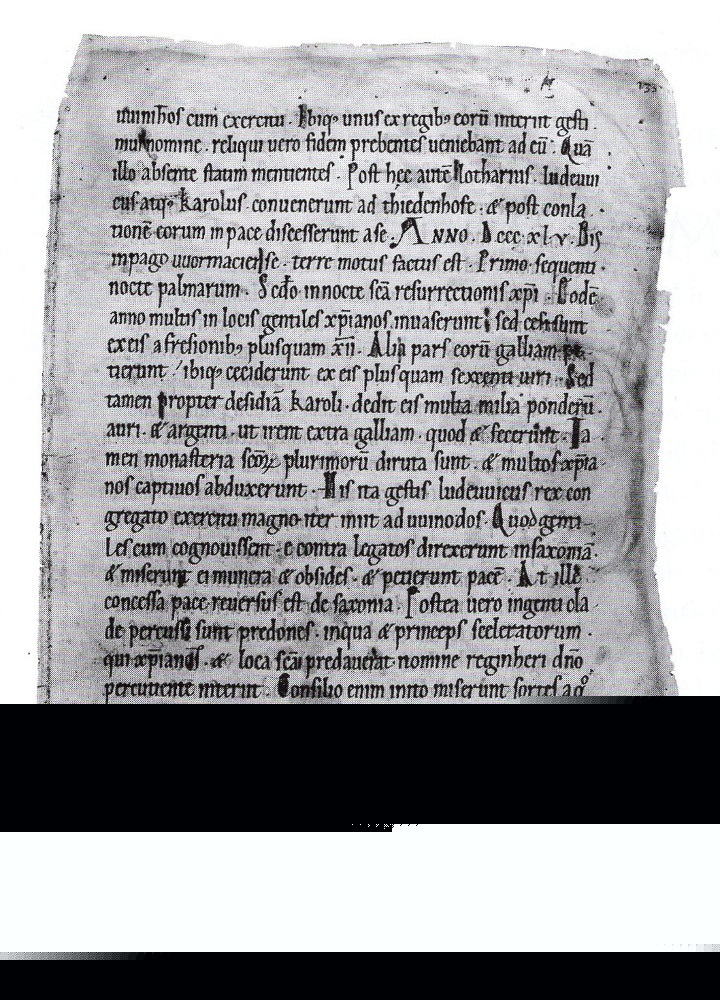 135
uuinihos cum exercitu. Ibiq; unus ex regib; eorū interiit gesti
mus nomine. reliqui uero fidem prebentes ueniebant ad eū. Quā
illo absente statim mentientes. Post hęc autē hlotharius. ludeuui
cus atq; karolus. convenerunt ad thiedenhofe. & post conla
tionē eorum in pace discesserunt a se. ANNO. Dccc xlv. Bis
in pago uuormaciense. terre motus factus est. Primo sequenti
nocte palmarum. Scdo in nocte scā resurrectionis xpi. Eodē
anno multis in locis gentiles xpianos inuaserunt; sed cesi sunt
ex eis a fresionib; plusquam xii. Alia pars eorū galliam pe
tierunt / ibiq; ceciderunt ex eis plusquam sexcenti uiri. Sed
tamen propter desidiā karoli. dedit eis multa milia ponderū.
auri. & argenti. ut irent extra galliam. quod & fecerunt. Ta
men monasteria scōꝝ plurimorū diruta sunt. & multos xpia
nos captiuos abduxerunt. His ita gestis ludeuuicus rex con
gregato exercitu magno. iter iniit ad uuinodos. Quod genti
les cum cognouissent. e contra legatos direxerunt in saxoniā.
& miserunt ei munera & obsides. & petierunt pacē. At ille
concessa pace reuersus est de saxonia. Postea uero ingenti cla
de percussi sunt predones. in qua & princeps sceleratorum.
qui xpianos. & loca scā predauerat. nomine reginheri dno
percutiente interiit. Consilio enim inito miserunt sortes a q°